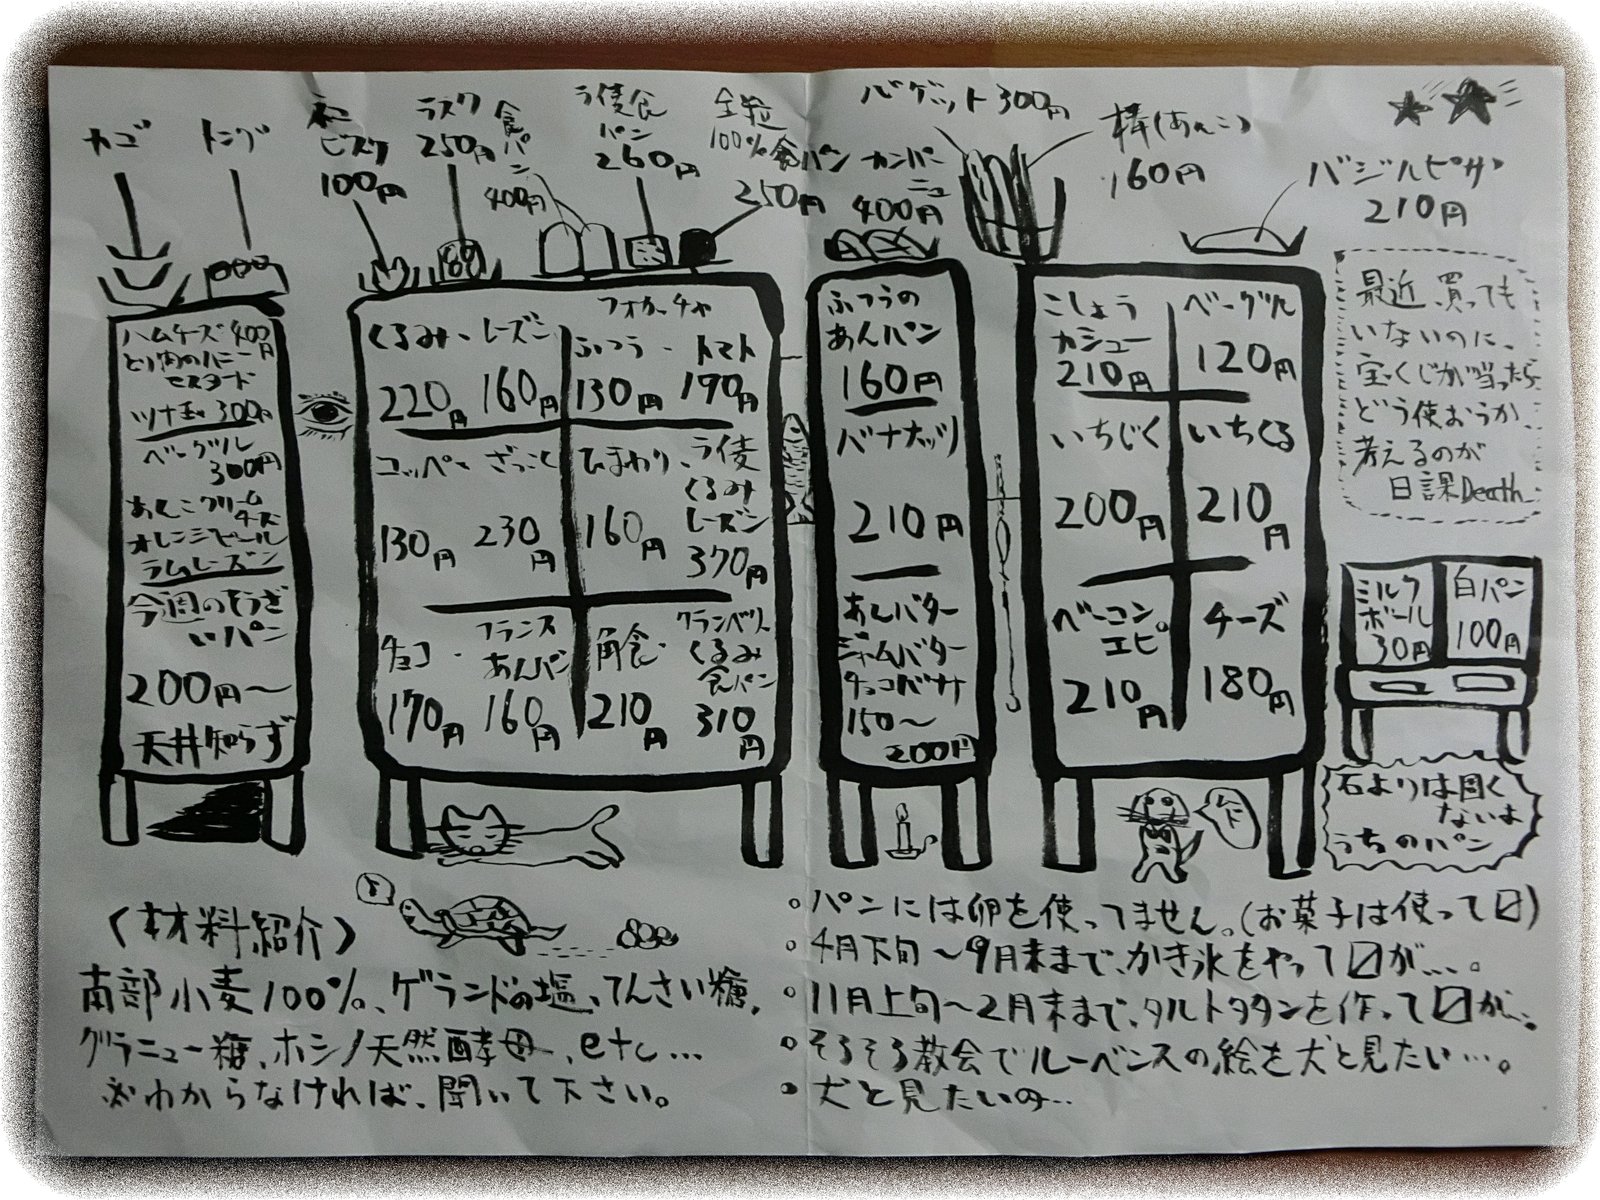 カゴ
トング
ビスケ
100円
ラスク
250円
食パン
400円
ラ債食
パン
260円
全粒
100%食パン
250円
カンパー
ニュ
400円
バゲット300円
棒(あんこ)
160円
バジルピザ
210円
ハムチーズ400円
とり肉のハニー
マスタード
ツナ玉300円
ベーグル
300円
あんこクリーム
チーズ
オレンジピール
ラムレーズン
今週のそうざ
いパン
200円〜
天井知らず
くるみ・レーズン
220円 160円
フォカッチャ
ふつう・トマト
130円 190円
コッペ・ざっこく
130円 230円
ひまわり・ラ債
くるみ
レーズン
160円 370円
チョコ・フランス
あんパン
170円 160円
角食・クランベリー
くるみ
食パン
210円 310円
ふつうの
あんパン
160円
バナナッツ
210円
あんバター
ジャムバター
チョコバナナ
150〜
200円
こしょう
カシュー
210円
ベーグル
120円
いちじく
200円
いちくる
210円
ベーコン
エピ
210円
チーズ
180円
最近、買っても
いないのに、
宝くじが当ったら
どう使おうか、
考えるのが
日課Death
ミルク
ボール
30円
白パン
100円
石よりは固く
ないよ
うちのパン
〈材料紹介〉
南部小麦100%、ゲランドの塩、てんさい糖、
グラニュー糖、ホシノ天然酵母、etc…
※わからなければ、聞いて下さい。
。パンには卵を使ってません。(お菓子は使って〼)
。4月下旬〜9月末まで、かき氷をやって〼が…。
。11月上旬〜2月末まで、タルトタタンを作って〼が…。
。そろそろ教会でルーベンスの絵を犬と見たい…。
。犬と見たいの…